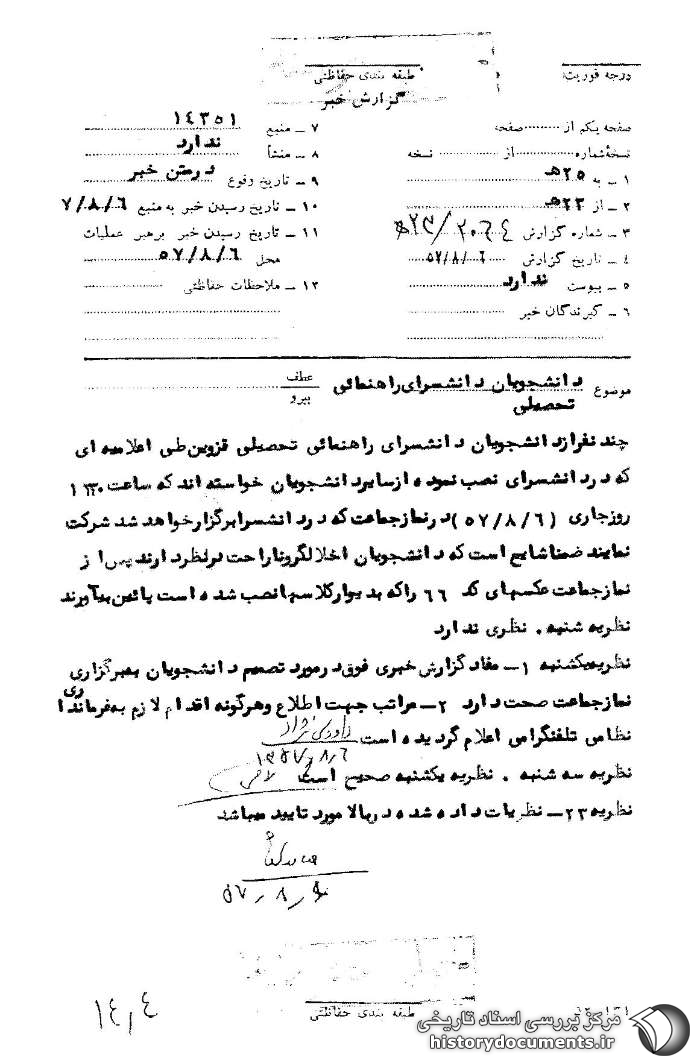 درجه فوریت:
طبقه بندی حفاظتی
گزارش خبر
صفحه یکم از ........ صفحه
نسخهٔ شماره ........ از ........ نسخه
۱ – به ۲۵ﻫ
۲ – از ۲۳ﻫ
۳ – شماره گزارش
۴ – تاریخ گزارش ۵۷/۸/۶
۵ – پیوست ندارد
۶ – گیرندگان خبر
۷ – منبع ۱۴۳۵۱
۸ – منشأ ندارد
۹ – تاریخ وقوع درمتن خبر
۱۰ – تاریخ رسیدن خبر به منبع ۷/۸/۶
۱۱ – تاریخ رسیدن خبر برهبر عملیات
محل ۵۷/۸/۶
۱۲ – ملاحظات حفاظتی
موضوع دانشجویان دانشسرای راهنمائی
تحصیلی
عطف
پیرو
چند نفراز دانشجویان دانشسرای راهنمائی تحصیلی قزوین طی اعلامیه ای
که در دانشسرای نصب نموده از سایر دانشجویان خواسته اند که ساعت ۱۳۰۰
روزجاری (۵۷/۸/۶) در نمازجماعت که در دانشسرا برگزار خواهد شد شرکت
نمایند ضمنا شایع است که دانشجویان اخلالگر و ناراحت در نظر دارند پس از
نماز جماعت عکسهای کد ۶۶ را که بدیوار کلاسها نصب شده است پائین بیآورند
نظریه شنبه . نظری ندارد
نظریه یکشنبه ۱– مفاد گزارش خبری فوق در مورد تصمیم دانشجویان به برگزاری
نماز جماعت صحت دارد ۲– مراتب جهت اطلاع و هرگونه اقدام لازم به فرمانداری
نظامی تلفنگرامی اعلام گردیده است داودی نژاد
۱۳۵۷٫۸٫۶
نظریه سه شنبه . نظریه یکشنبه صحیح است
نظریه ۲۳– نظریات داده شده در بالا مورد تایید میباشد
۵۷٫۸٫
طبقه بندی حفاظتی
۱۴٫۴
مرکز بررسی اسناد تاریخی
historydocuments.ir